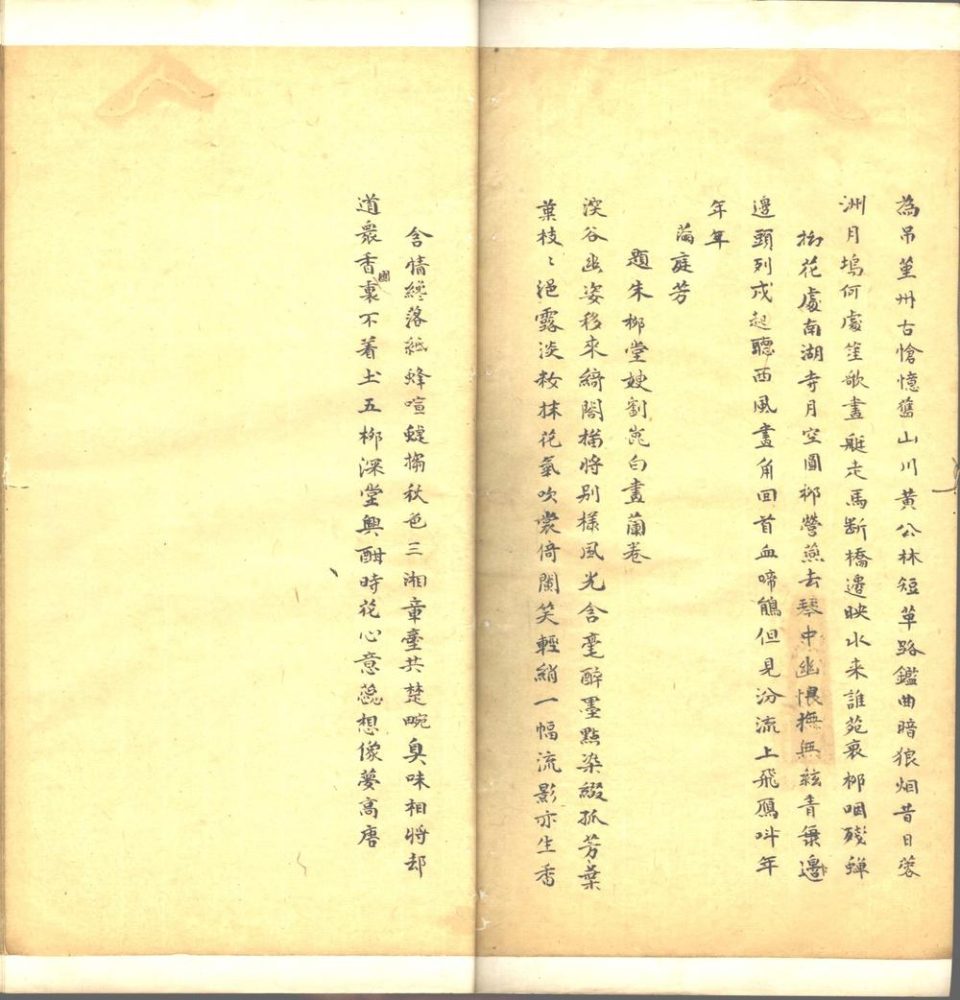 為吊菫州古愴憶舊山川黄公林短草路鑑曲暗狼烟昔日蓉
洲月塢何處笙歌畫艇走馬断橋邉映水来誰苑衰栁咽殘蟬
花處南湖寺月空圓栁營燕去琴中幽恨撫無絃青無邉
邉頭列戍起聽西風畫角回首血啼鵑但見汾流上飛鴈呌年
年年
滿庭芳
題朱栁堂嫂劉崑白畫蘭卷
深谷幽姿移来綺閣描将别様風光含毫醉墨點染綴孤芳葉
葉枝〻浥露淡粧抹花氣吹裳倚闌笑輕綃一幅流影亦生香
含情纔落紙蜂喧蜨搊秋色三湘章臺共楚畹臭味相将却
道衆香國裏不着土五栁深堂興酣時花心意蕊想像夢高唐